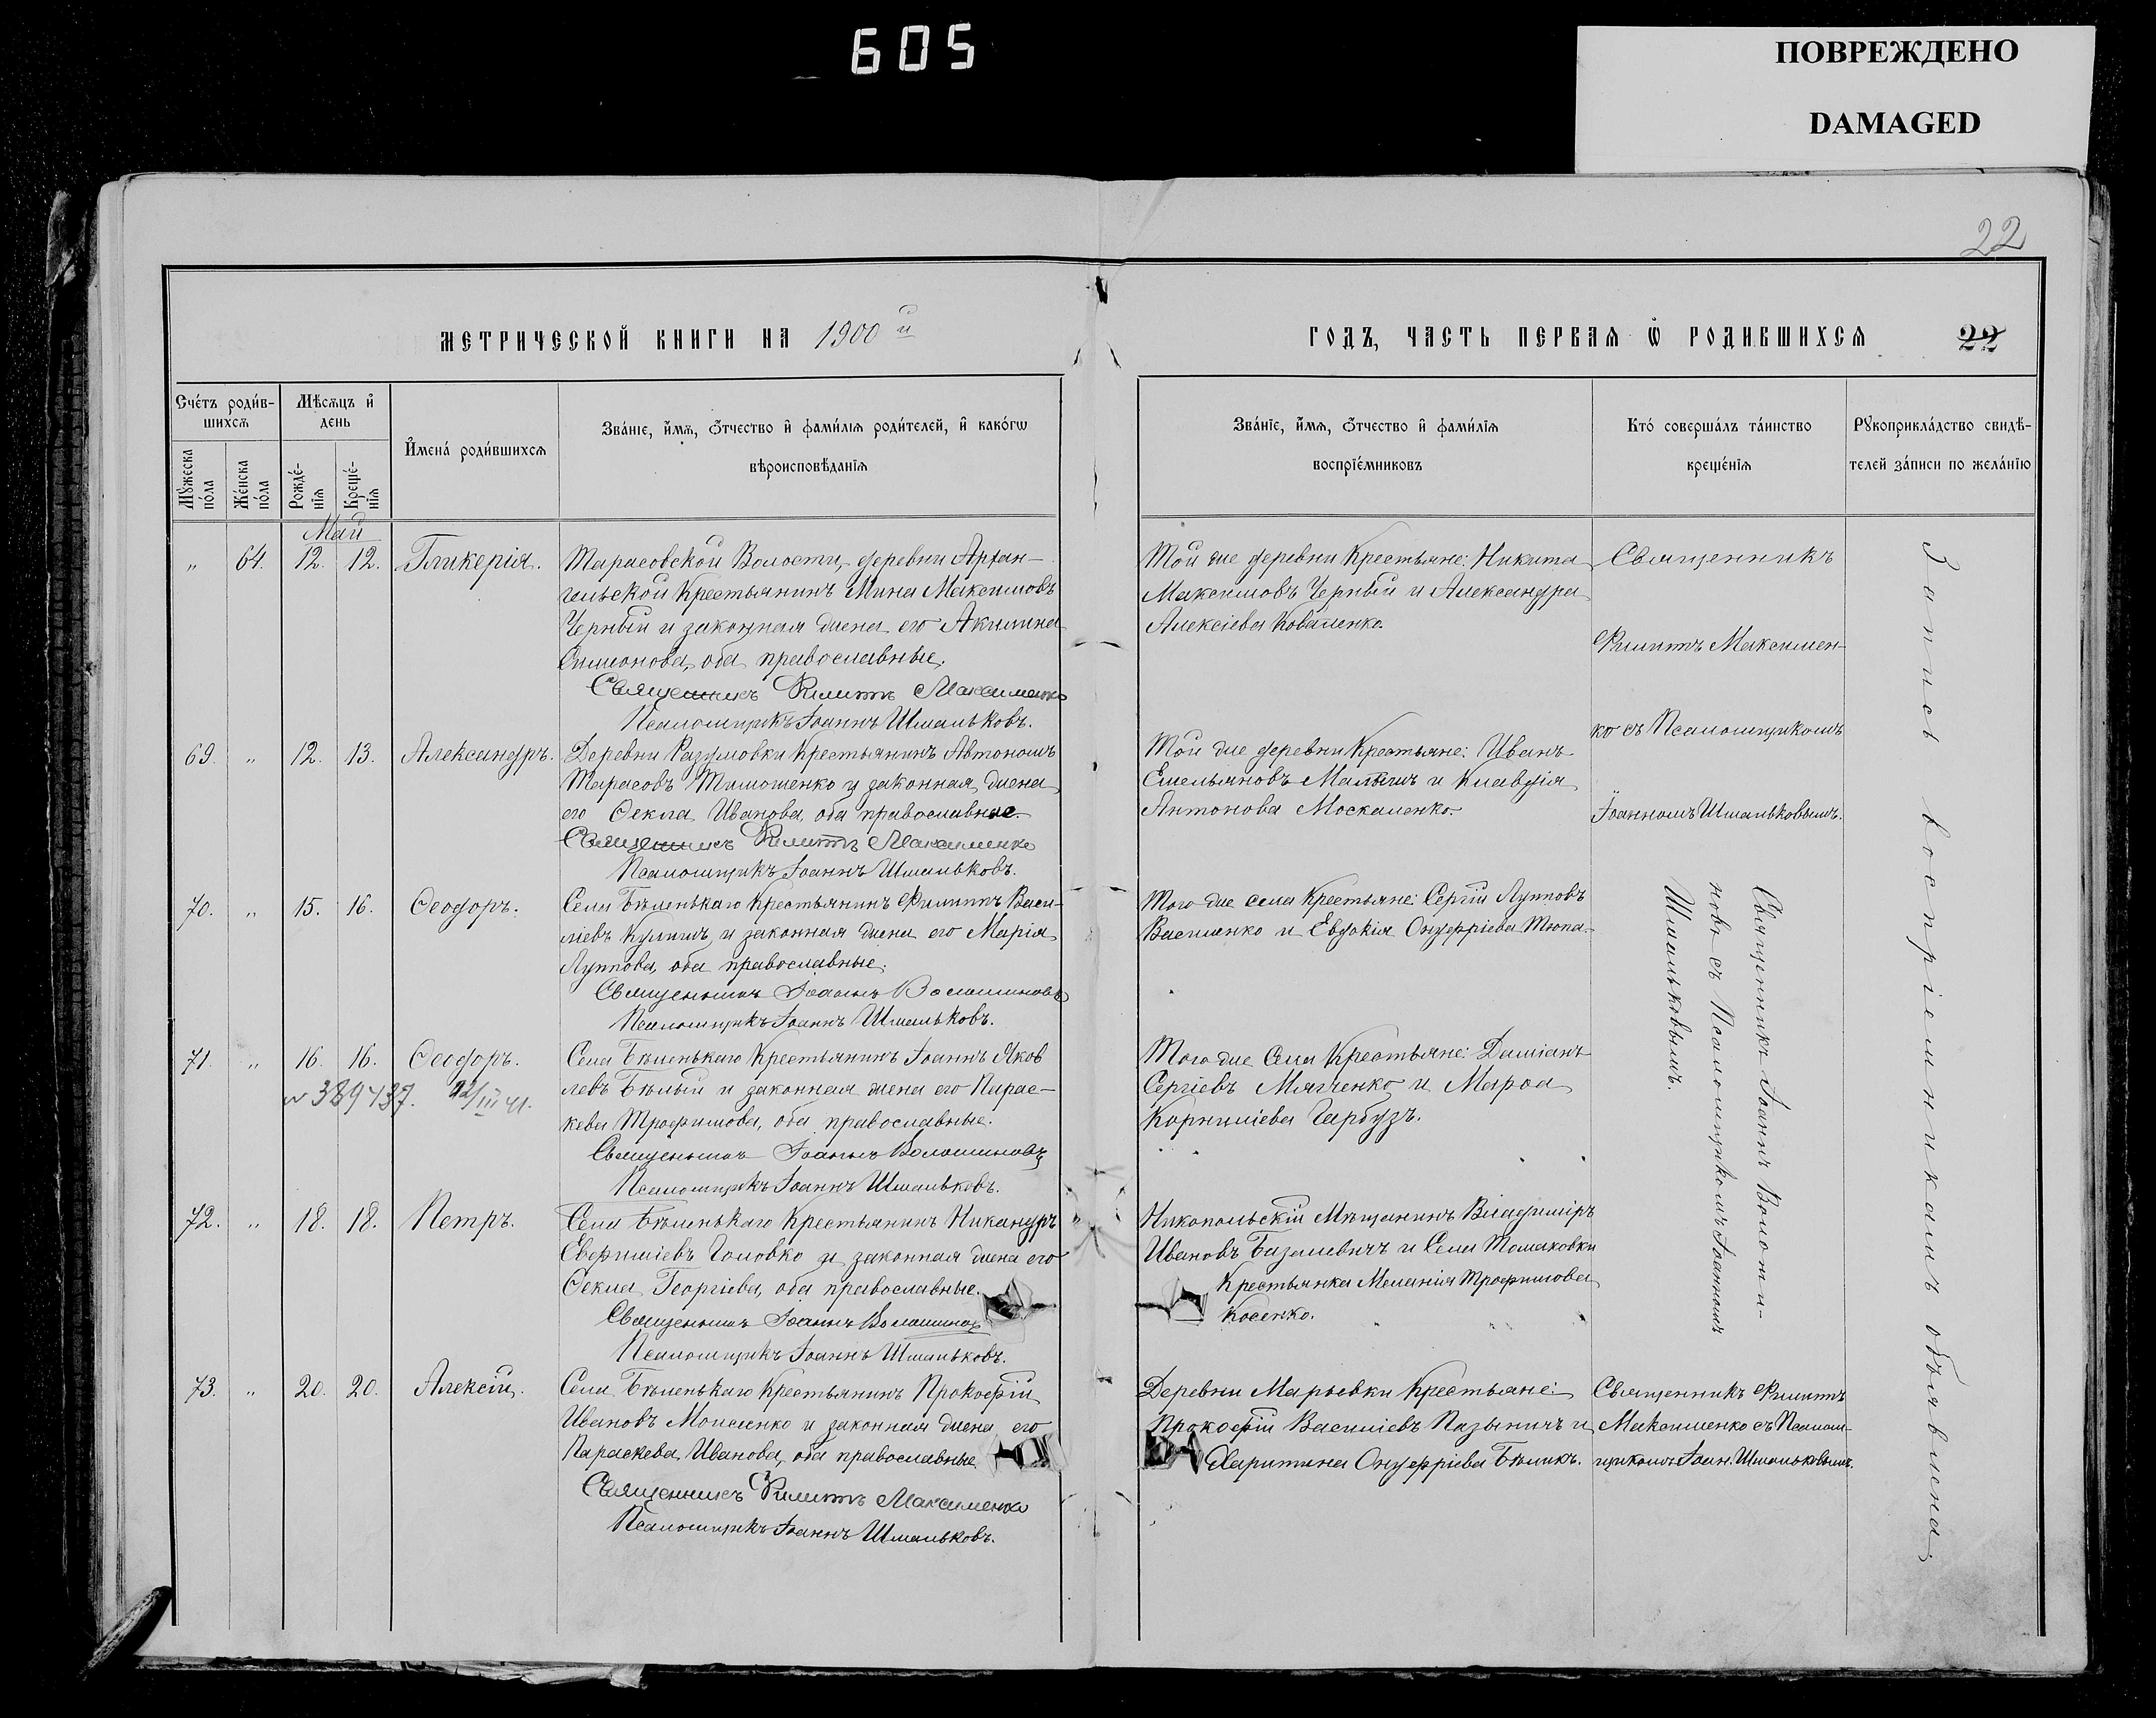 605
ПОВРЕЖДЕНО
DAMAGED
22
МЕТРИЧЕСКОЙ КНИГИ НА 1900й
ГОДЪ, ЧАСТЬ ПЕРВАЯ Ѡ РОДИВШИХСЯ 22
Счетъ родив-
шихся
Мужеска
пола
Женска
пола
Мѣсяцъ и
день
Рожде-
нія
Креще-
нія
Имена родившихся
Званіе, имя, отчество и фамилія родителей, и какогѡ
вѣроисповѣданія
Званіе, имя, отчество и фамилія
воспріемниковъ
Кто совершалъ таинство
крещенія
Рукоприкладство свидѣ-
телей записи по желанію
Май
„ 64. 12. 12. Гликерія.
Тарасовской Волости, деревни Архан-
гельской Крестьянинъ Мина Максимовъ
Черный и законная жена его Акилина
Симонова, оба православные.
Священникъ Филиппъ Максименко
Псаломщикъ Іоаннъ Шмальковъ.
Той же деревни Крестьяне: Никита
Максимовъ Черный и Александра
Алексіева Коваленко.
Священникъ
Филиппъ Максимен-
ко съ Псаломщикомъ
Іоанномъ Шмальковымъ.
69. „ 12. 13. Александръ.
Деревни Разумовки Крестьянинъ Автономъ
Тарасовъ Тимошенко и законная жена
его Ѳекла Иванова, оба православные.
Священникъ Филиппъ Максименко
Псаломщикъ Іоаннъ Шмальковъ.
Той же деревни Крестьяне: Иванъ
Емельяновъ и Клавдія
Антонова Москаленко.
70. „ 15. 16. Ѳеодоръ.
Села Бѣленькаго Крестьянинъ Филиппъ Васи-
ліевъ Кулишъ и законная жена его Марія
Луппова, оба православные.
Священникъ Іоаннъ Волошиновъ
Псаломщикъ Іоаннъ Шмальковъ.
Того же села Крестьяне: Сергій Лупповъ
Василенко и Евдокія Онуфріева Тюпа.
Священникъ Іоаннъ Волоши-
новъ съ Псаломщикомъ Іоанномъ
Шмальковымъ.
71. „ 16. 16. Ѳеодоръ.
389437. 12/III 41.
Села Бѣленькаго Крестьянинъ Іоаннъ Яков
левъ Бѣлый и законная жена его Парас-
кева Трофимова, оба православные.
Священникъ Іоаннъ Волошиновъ
Псаломщикъ Іоаннъ Шмальковъ.
Того же Села Крестьяне: Даміанъ
Сергіевъ Мягченко и Марѳа
Корниліева Гарбузъ.
72. „ 18. 18. Петръ.
Села Бѣленькаго Крестьянинъ Никандръ
Евфиміевъ Головко и законная жена его
Ѳекла Георгіева, оба православные.
Священникъ Іоаннъ Волошиновъ
Псаломщикъ Іоаннъ Шмальковъ.
Никопольскій Мѣщанинъ Владиміръ
Ивановъ Базилевичъ и Села Томаковки
Крестьянка Меланія Трофимова
Косенко.
73. „ 20. 20. Алексій.
Села Бѣленькаго Крестьянинъ Прокофій
Ивановъ Моисеенко и законная жена его
Параскева Иванова, оба православные
Священникъ Филиппъ Максименко
Псаломщикъ Іоаннъ Шмальковъ.
Деревни Марьевки Крестьяне:
Прокофій Василіевъ и
Харитина Онуфріева Бѣликъ.
Священникъ Филиппъ
Максименко съ Псалом-
щикомъ Іоан. Шмальковымъ.
Запись воспріемникамъ объявлена.